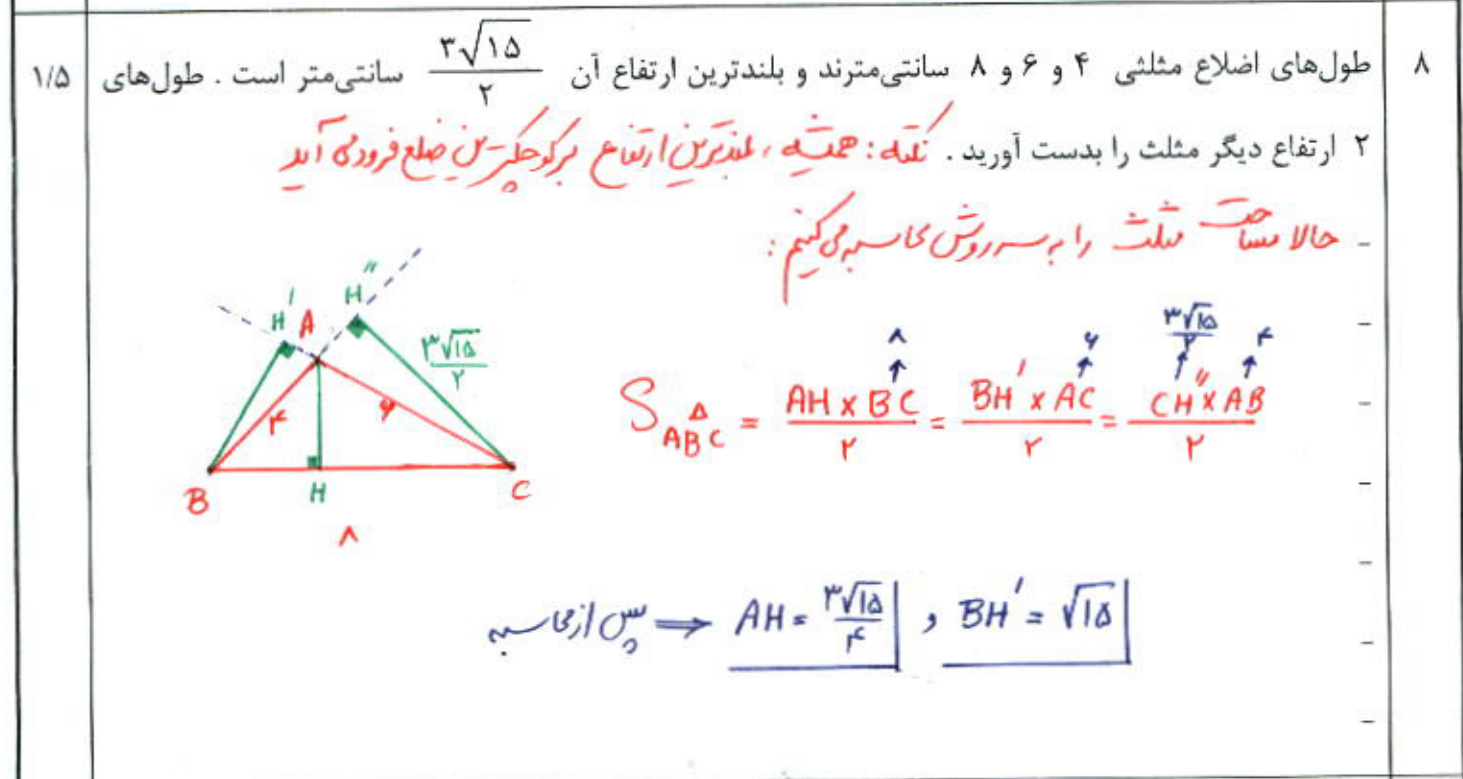 ۸ طول‌های اضلاع مثلثی ۴ و ۶ و ۸ سانتی‌مترند و بلندترین ارتفاع آن ۳√۱۵/۲ سانتی‌متر است . طول‌های ۱/۵
۲ ارتفاع دیگر مثلث را بدست آورید . نکته : همیشه ، بلندترین ارتفاع بر کوچکترین ضلع فرود می آید
حالا مساحت مثلث را به سه روش محاسبه می کنیم :
H' A H'' ۳√۱۵/۲
۴ ۶
B H C
۸
۸ ۶ ۳√۱۵/۲ ۴
S ABC = AH × BC / ۲ = BH' × AC / ۲ = CH'' × AB / ۲
پس از محاسبه ⟹ AH = ۳√۱۵/۴ , BH' = √۱۵